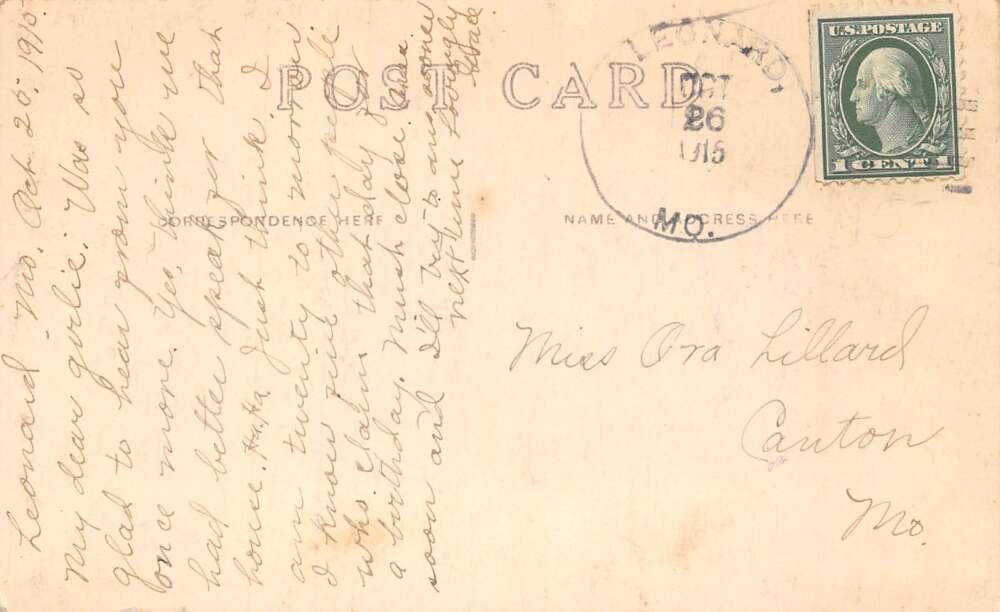 POST CARD
CORRESPONDENCE HERE
NAME AND ADDRESS HERE
LEONARD,
OCT
26
1915
MO.
U.S. POSTAGE
1 CENT 1
Leonard Mo. Oct. 25, 1915.
My dear girlie: Was so
glad to hear from you
once more. Yes, think we
had better speak for that
house. Ha, Ha Just think I
am twenty to-morrow
I know five other people
who claim that day for
a birthday. Must close. Write
soon and I'll try to ans. sooner
next time Lovingly
Miss Ora Lillard
Canton
Mo.